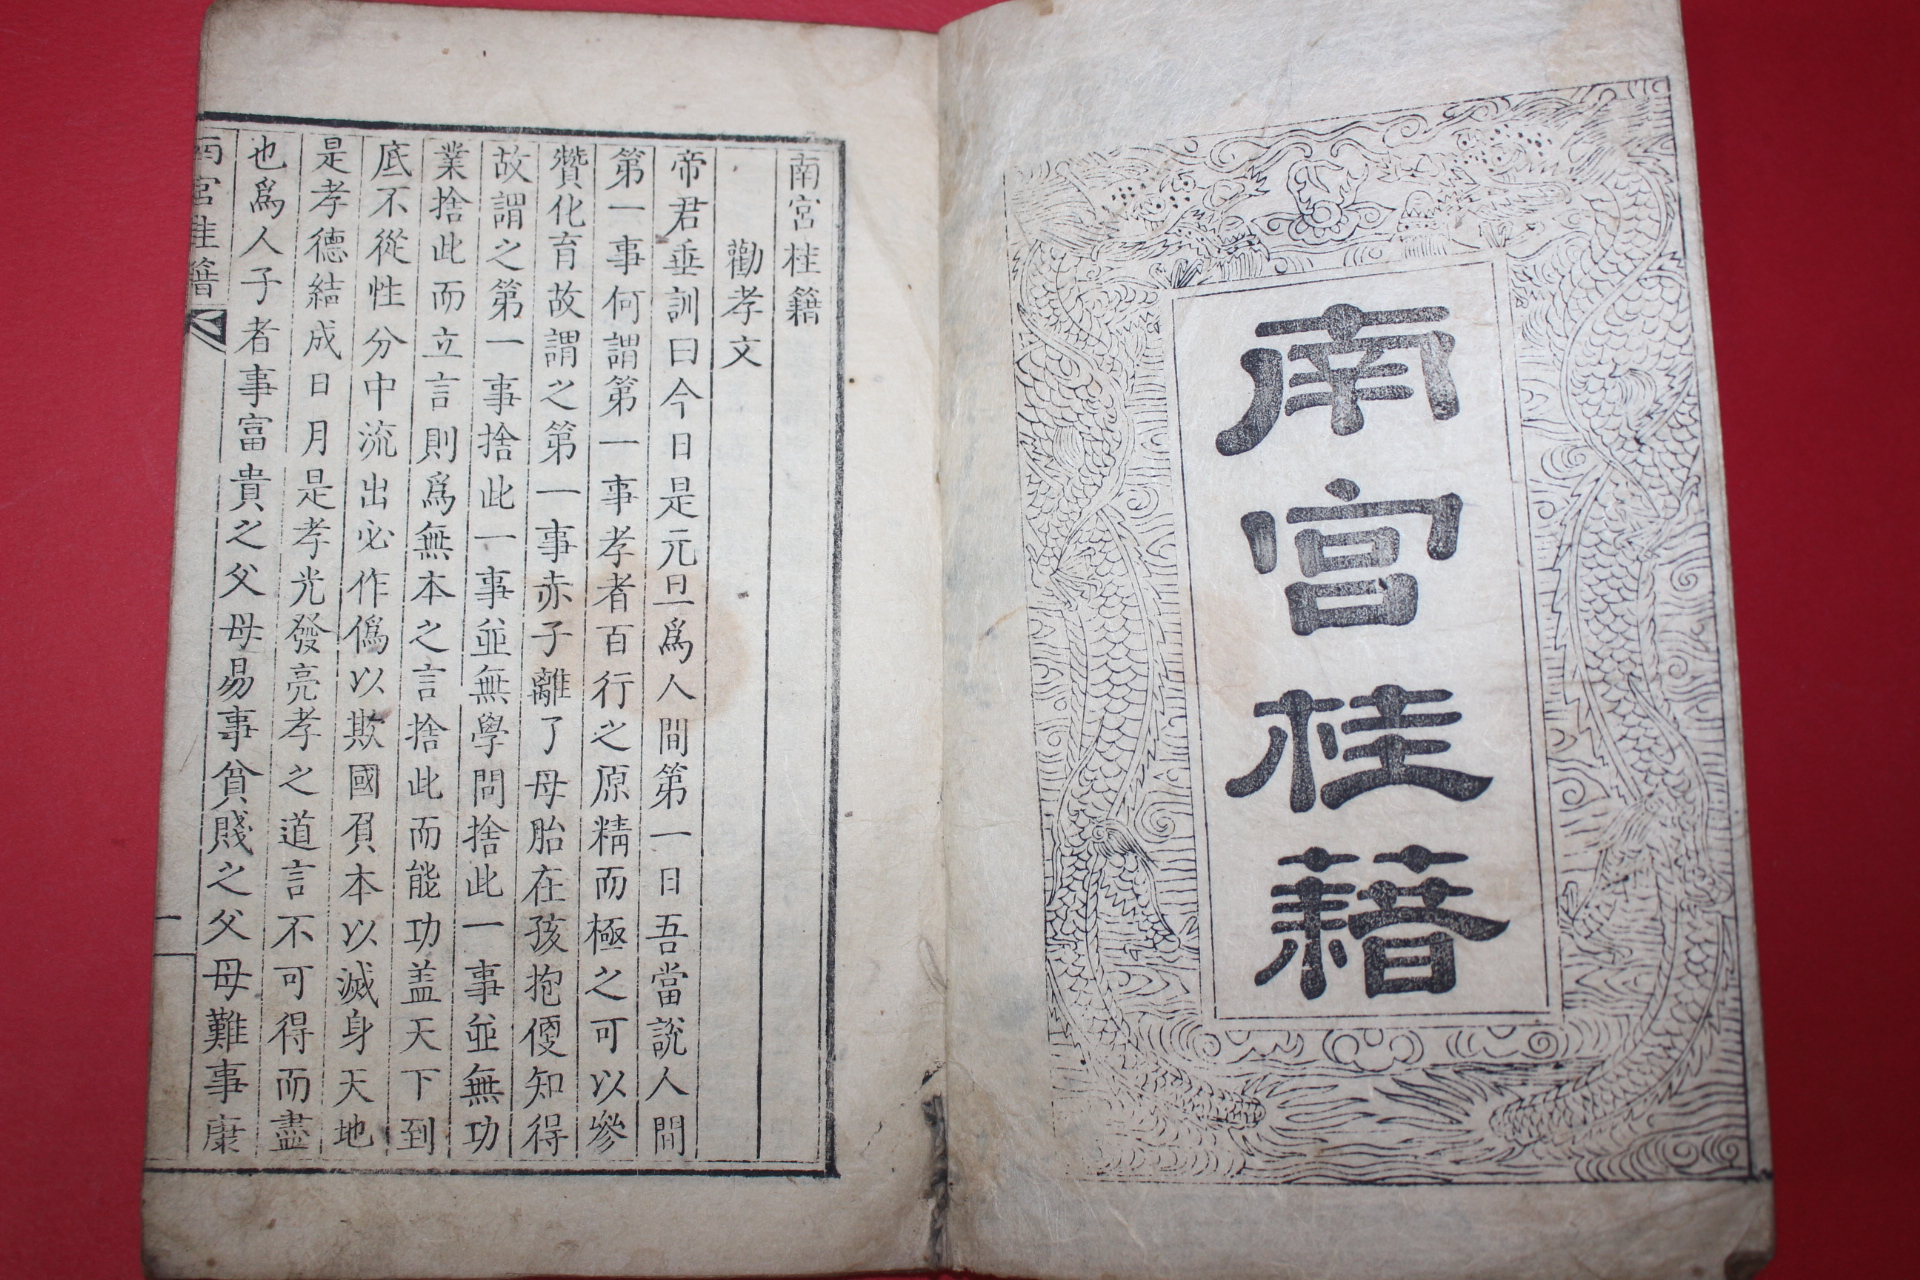 南宮桂籍
南宮桂籍
勸孝文
帝君垂訓曰今日是元旦爲人間第一日吾當說人間
第一事何謂第一事孝者百行之原精而極之可以參
贊化育故謂之第一事赤子離了母胎在孩抱便知得
故謂之第一事捨此一事並無學問捨此一事並無功
業捨此而立言則爲無本之言捨此而能功盖天下到
底不從性分中流出必作僞以欺國負本以滅身天地
是孝德結成日月是孝光發亮孝之道言不可得而盡
也爲人子者事富貴之父母易事貧賤之父母難事康
南宮桂籍
一